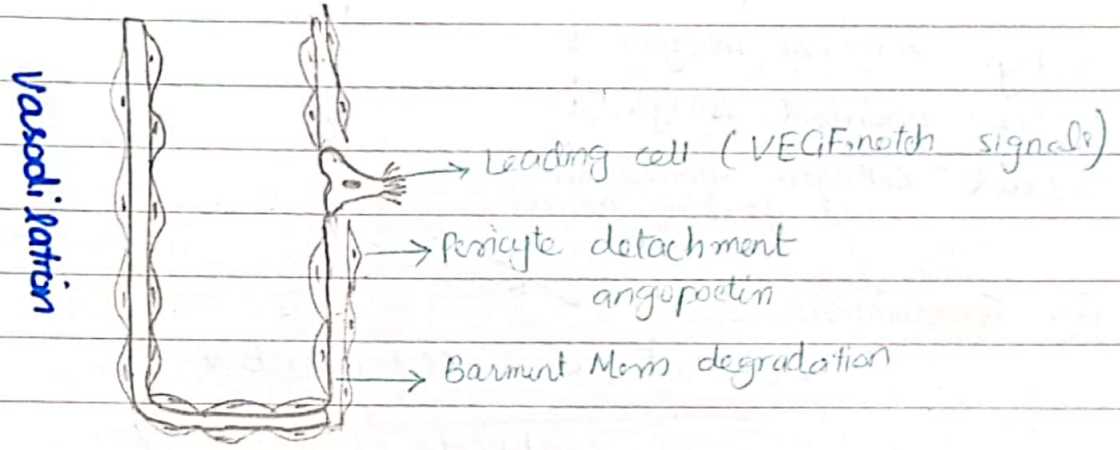 Vasodilation
Leading cell (VEGF, notch signals)
Pericyte detachment
angopoetin
Barment Mem degradation